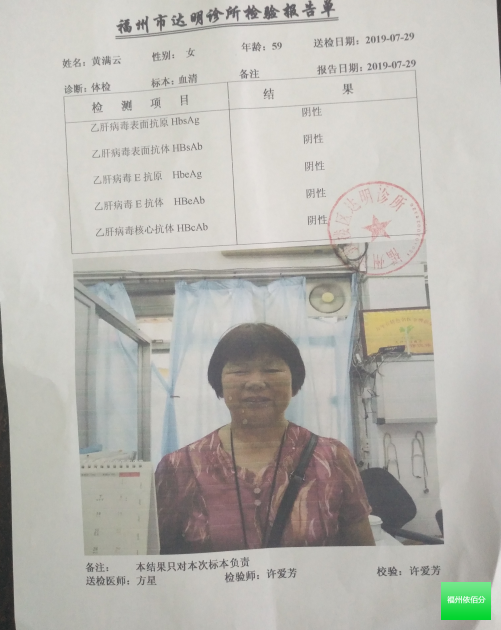 福州市达明诊所检验报告单
姓名：黄满云 性别： 女 年龄：59 送检日期：2019-07-29
诊断：体检 标本：血清 备注 报告日期：2019-07-29
检 测 项 目 结 果
乙肝病毒表面抗原 HbsAg 阴性
乙肝病毒表面抗体 HBsAb 阴性
乙肝病毒 E 抗原 HbeAg 阴性
乙肝病毒 E 抗体 HBeAb 阴性
乙肝病毒核心抗体 HBcAb 阴性
区达明诊所
福州
备注： 本结果只对本次标本负责
送检医师：方星 检验师：许爱芳 校验：许爱芳
福州依佰分